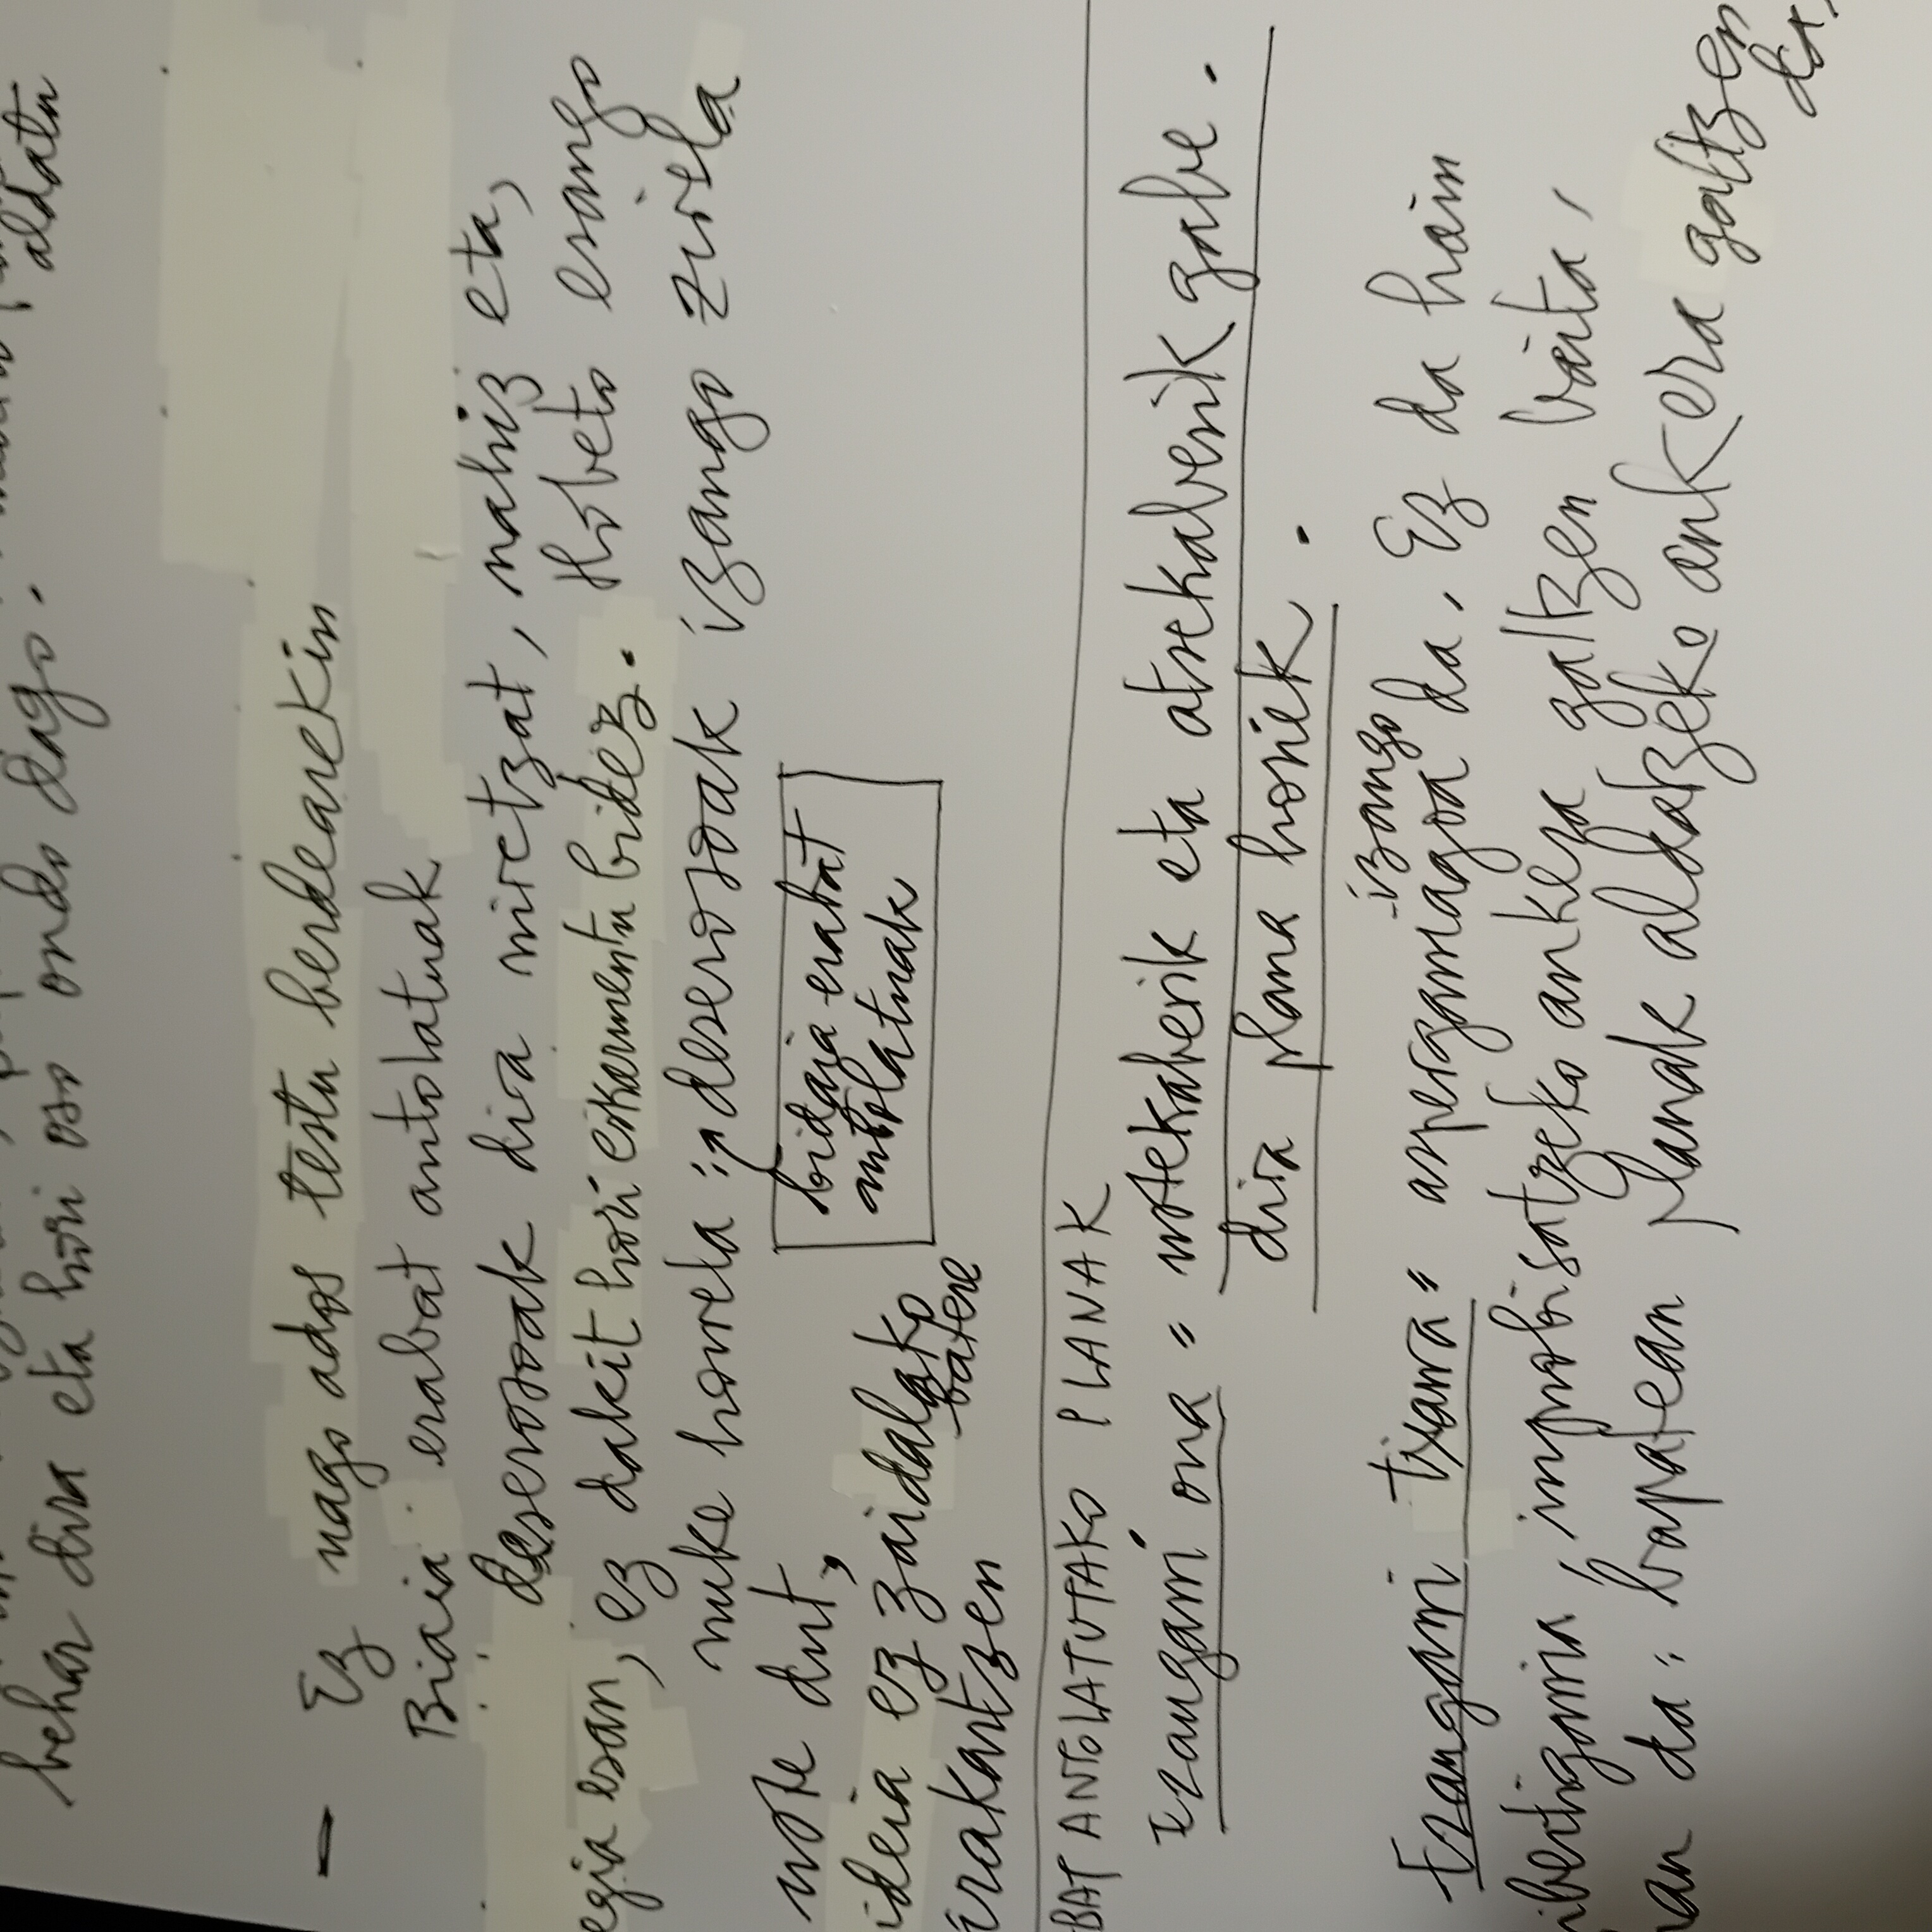 behar dira eta hori oso ondo dago. aldatu
- Ez nago ados testu berdearekin
Biaia erabat antolatuak
deserosoak dira niretzat, nahiz eta,
egia esan, ez dakit hori eskarmentu bidez. Hobeto esango
nuke horrela: deserosoak izango zirela
bidaia erabat
antolatuak
uste dut,
ideia ez zaidalako
batere
irakartzen
BAT ANTOLATUTAKO PLANAK
Ezaugarri ona " noteka­berik eta atsekaberik gabe.
dira plana horiek.
izango
Ezaugarri txarra " aspergarriagoa da. Ez da hain
dibertigarria, inprobisatzeko aukera galtzen baita,
bapatean planak aldatzeko aukera galtzen
da,